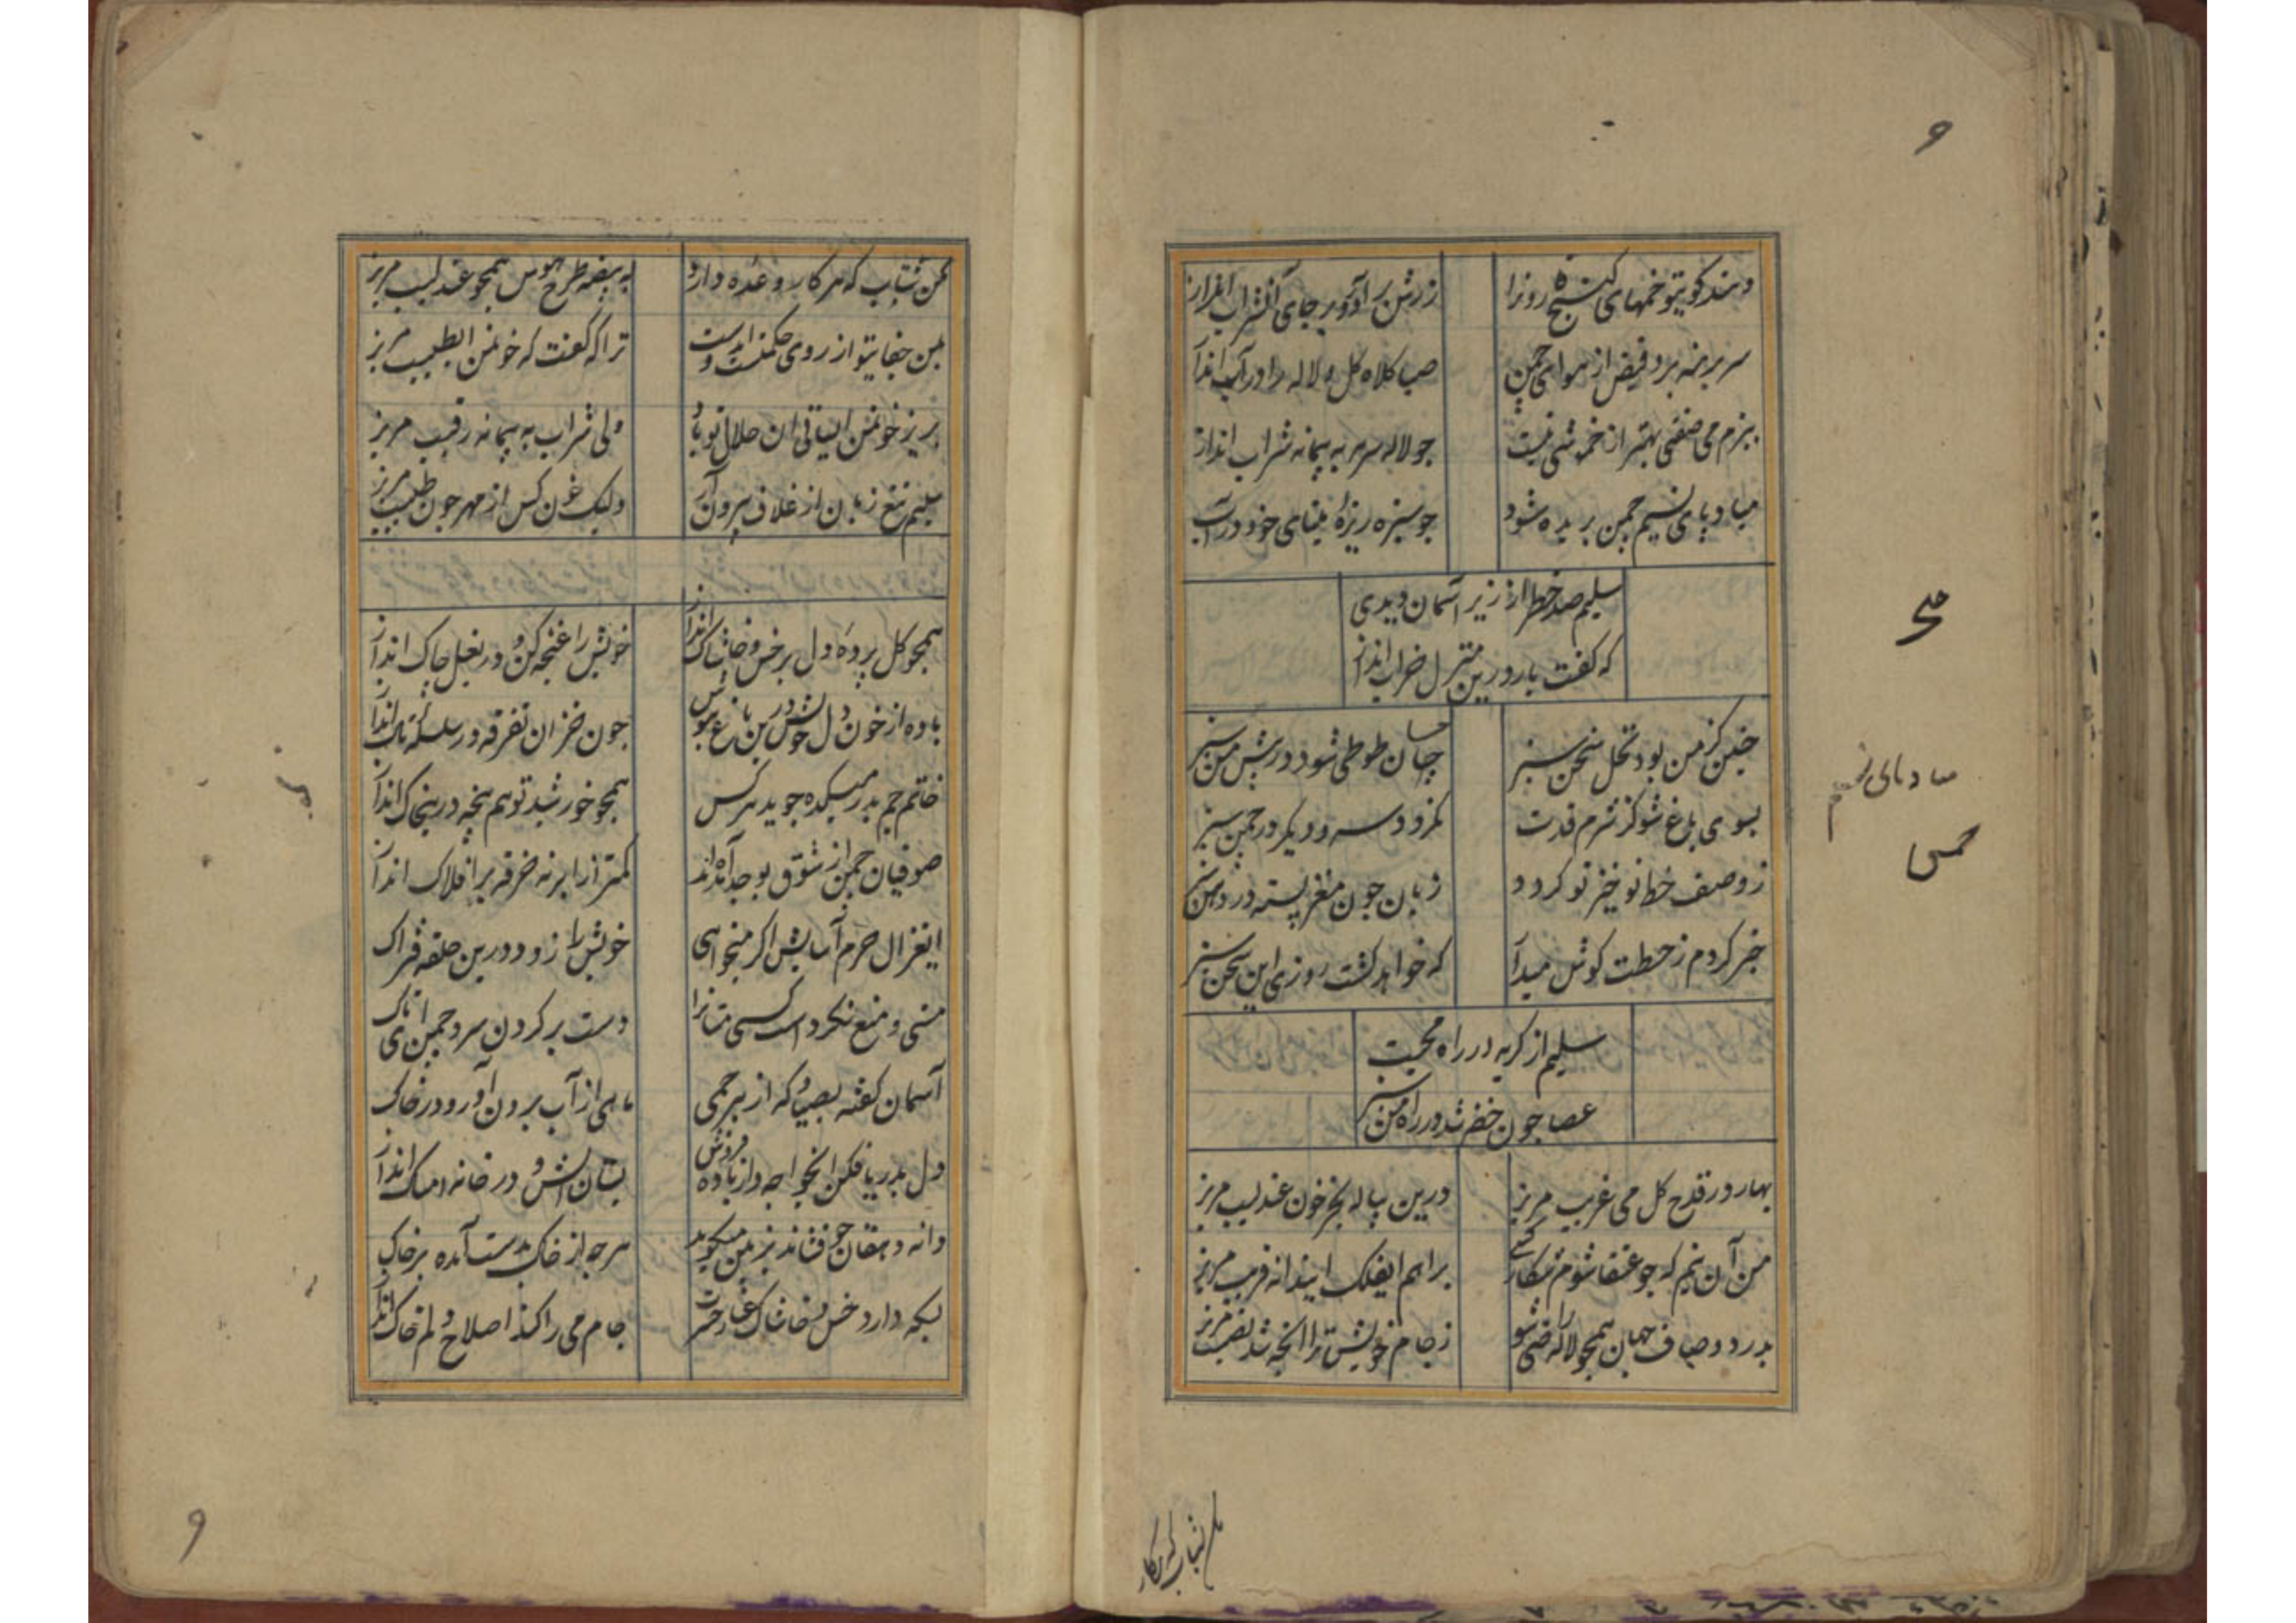 دهند کویتو خمهای کنج روزا
زرش را آور بر جای آفتاب انداز
سر برهنه برد فیض از هوای چمن
صبا کلاه کل و لاله را در آب انداز
ببزم می صفتی بهتر از خمشی نیست
جو لاله سرمه به پیمانه شراب انداز
مباد پای نسیم چمن بریده شود
جو سبزه ریزه مینای خود در آب
سلیم صد خطر از زیر آسمان دیدی
که کفت بار درین منزل خراب انداز
چنین کز من بود نخل سخن سبز
چسان طوطی شود در پیش من سبز
بسوی باغ شو کز شرم قدت
نکردد سرو دیکر در چمن سبز
ز وصف خط نوخیز تو کردد
زبان جون مغز پسته در دهن سبز
خبر کردم ز خطت کوش میدار
که خواهد کشت روزی این سخن سبز
سلیم از کریه در راه محبت
عصا جون خضر شد در راه من سبز
بهار در قدح کل می غریب مریز
درین پیاله بجز خون عندلیب مریز
من آن نیم که جو عنقا شوم شکار کسی
براهم ایفلک این دانه فریب مریز
بدرد و صاف جهان همچو لاله راضی شو
ز جام خویش ترا انچه شد نصیب مریز
مکن شتاب که هر کار
مکن شتاب که هر کار وعده دارد
به بیضه طرح هوس همچو عندلیب مریز
بمن جفا یتو از روی حکمتست ایدوست
ترا که کفت که خونمن ایطبیب مریز
بریز خونمن ایساقی ان حلال تو باد
ولی شراب به پیمانه رقیب مریز
سلیم تیغ زبان از غلاف بیرون آر
ولیک خون کس از مهر جون طبیب مریز
همچو کل پرده دل بر خس و خاشاک انداز
خویش را غنچه کن و در بغل چاک انداز
باده از خون دل خویش درین باغ بنوش
جون خزان تفرقه در سلسله تاک انداز
خاتم جم بدر میکده جوید هر کس
همچو خورشید تو هم پنجه درین خاک انداز
صوفیان چمن از شوق بوجد آمده اند
کمتر از ابر نه خرقه بر افلاک انداز
ایغزال حرم آسایش اکر میخواهی
خویش را زود درین حلقه فتراک
مستی و منع نکرد است کسی مستانرا
دست بر کردن سرو چمن ای تاک
آسمان کفته بصیاد که از بیرحمی
ماهی از آب برون آور و در خاک
دل بدریا فکن ایخواجه و از باده فروش
بستان آتش و در خانه امساک انداز
دانه دهقان جو فشاند بزمین میکوید
هر چه از خاک بدست آمده بر خاک
بسکه دارد خس و خاشاک
جام می را کند اصلاح دلم خاک انداز